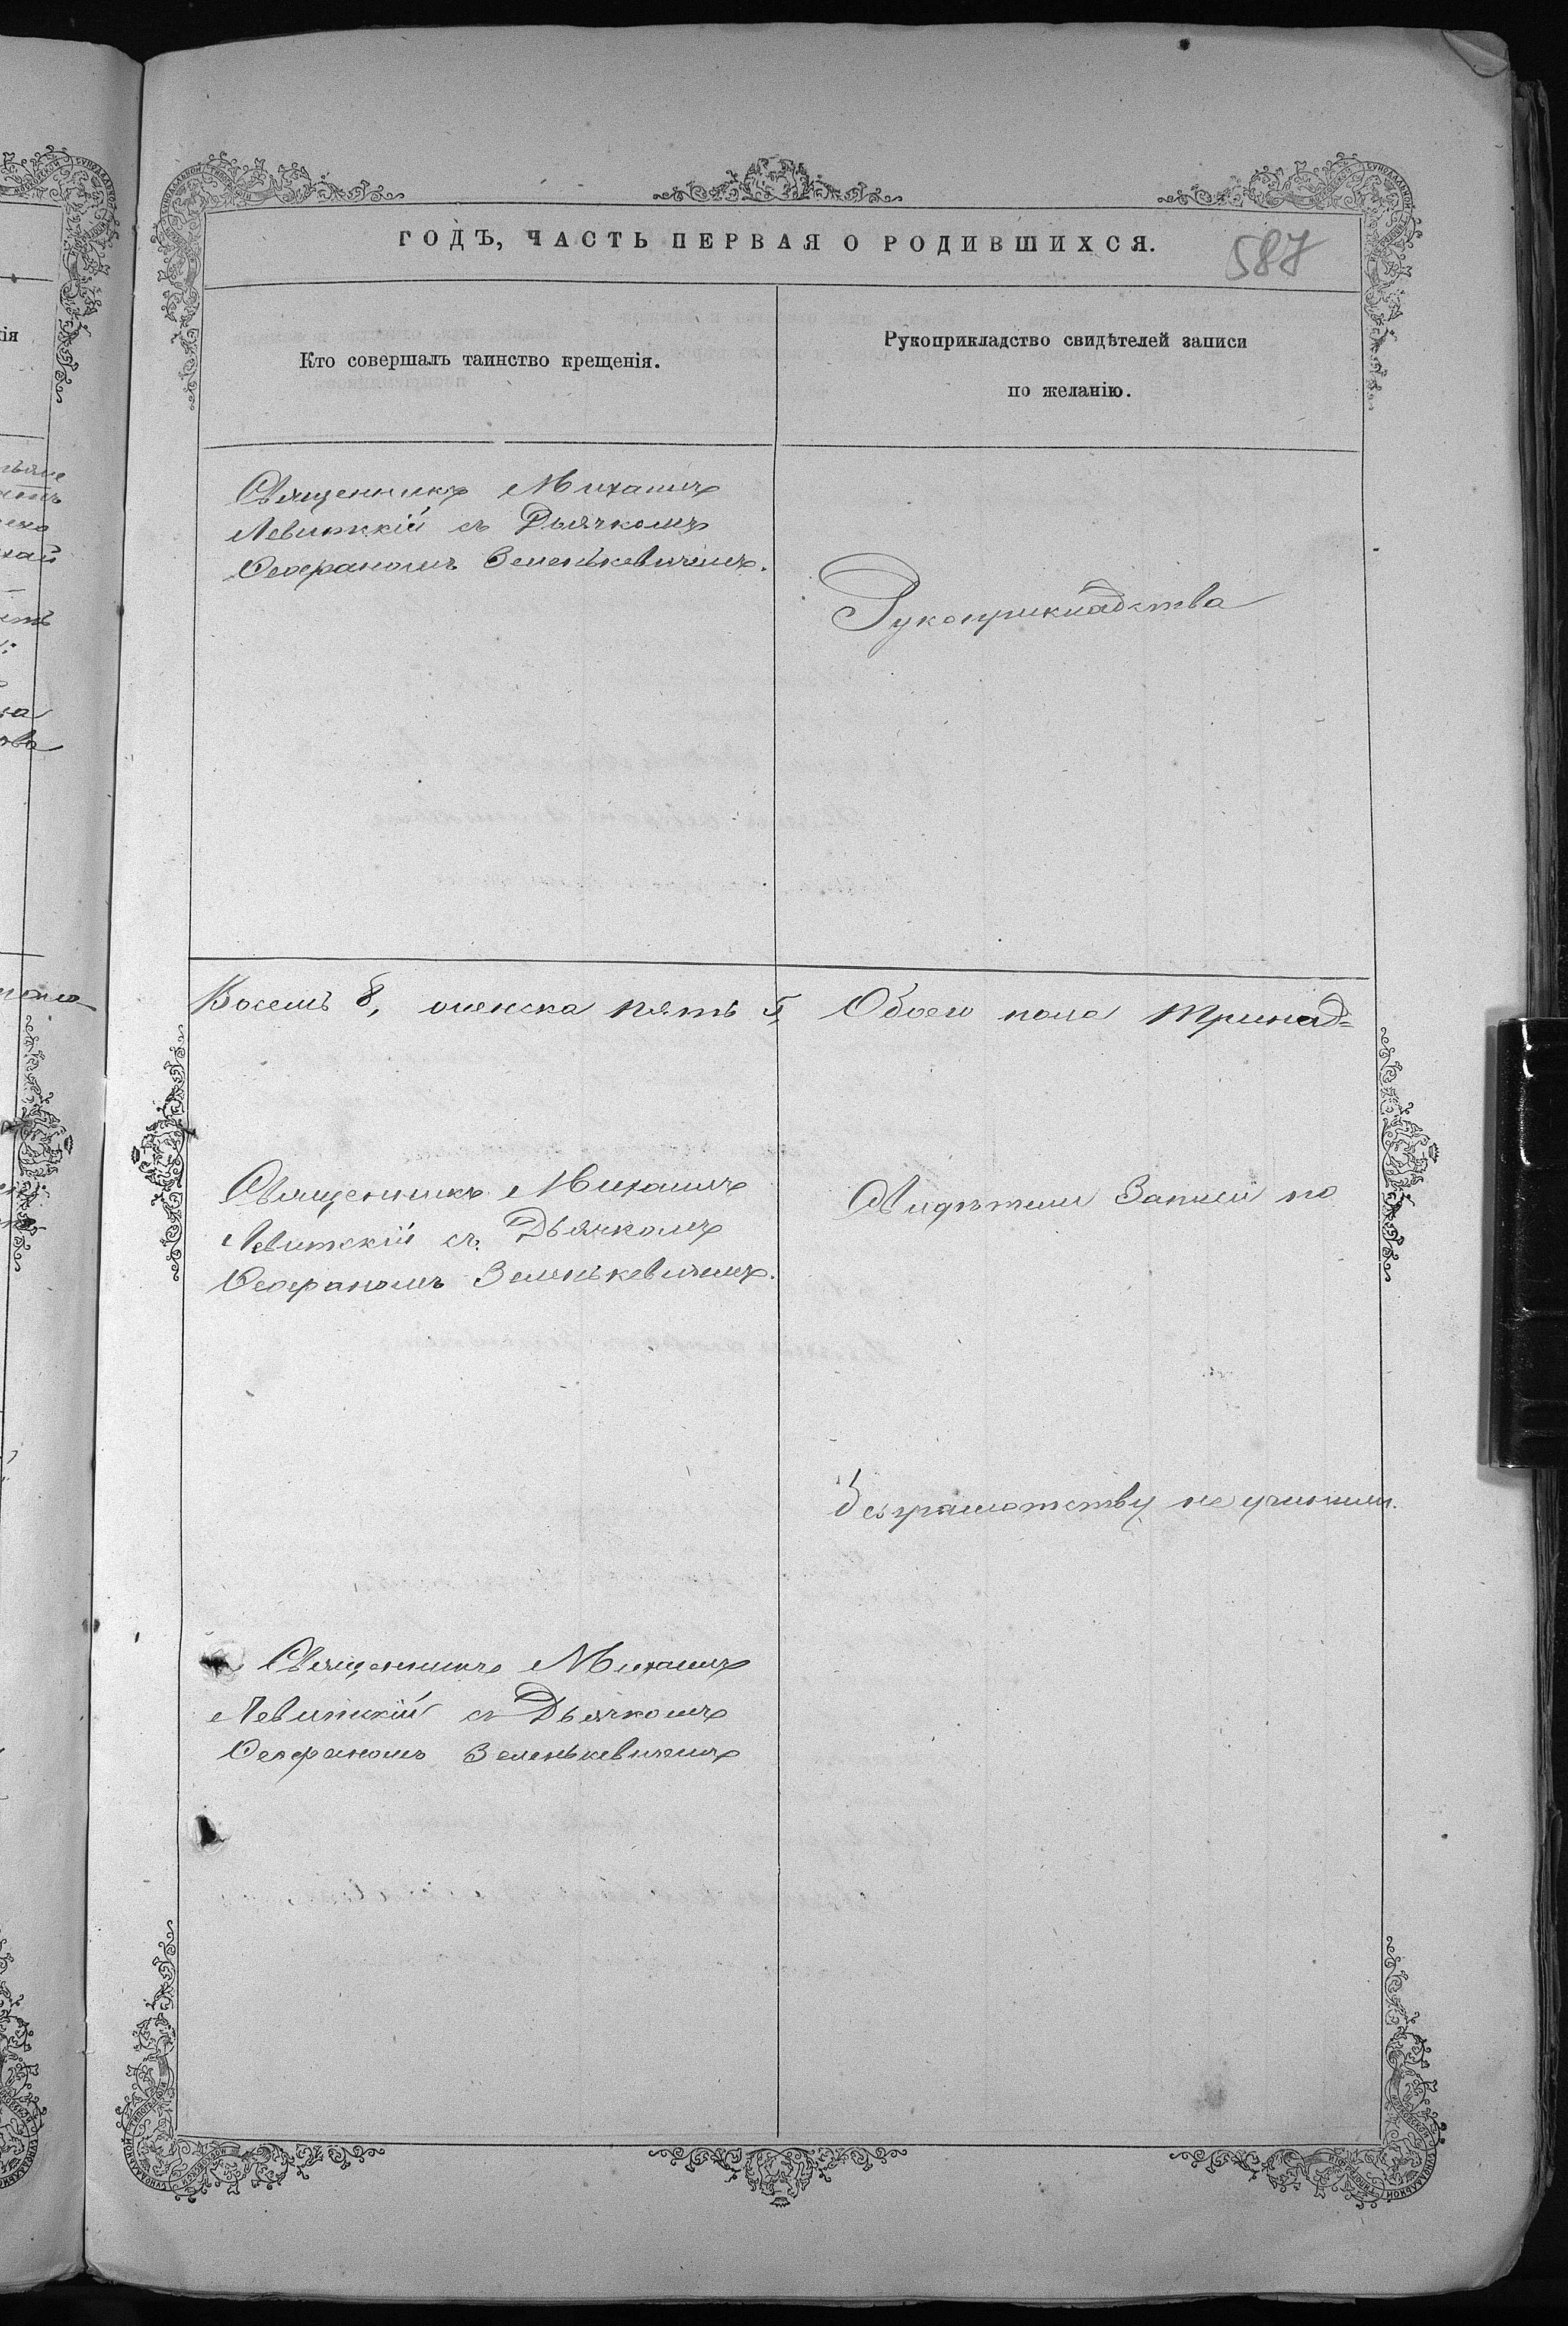 ГОДЪ, ЧАСТЬ ПЕРВАЯ О РОДИВШИХСЯ.
587
Кто совершалъ таинство крещенія.
Рукоприкладство свидѣтелей записи
по желанію.
Священникъ Михаилъ
Левитскій съ Дьячкомъ
Ѳеофаномъ Зеленькевичемъ.
Рукоприкладства
Восемь 8, женска пять 5,
Обоего пола тринад=
Священникъ Михаилъ
Левитскій съ Дьячкомъ
Ѳеофаномъ Зеленькевичемъ.
Свидѣтели Записи по
безграмотству не учинили.
Священникъ Михаилъ
Левитскій съ Дьячкомъ
Ѳеофаномъ Зеленькевичемъ